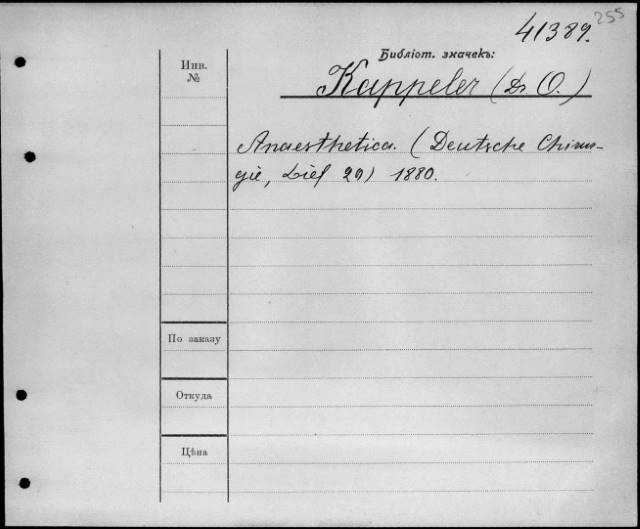 255
41389.
Библіот. значекъ:
Инв.
№
Kappeler (Dr O.)
Anaesthetica. (Deutsche Chirur-
gie, Lief 20) 1880.
По заказу
Откуда
Цѣна